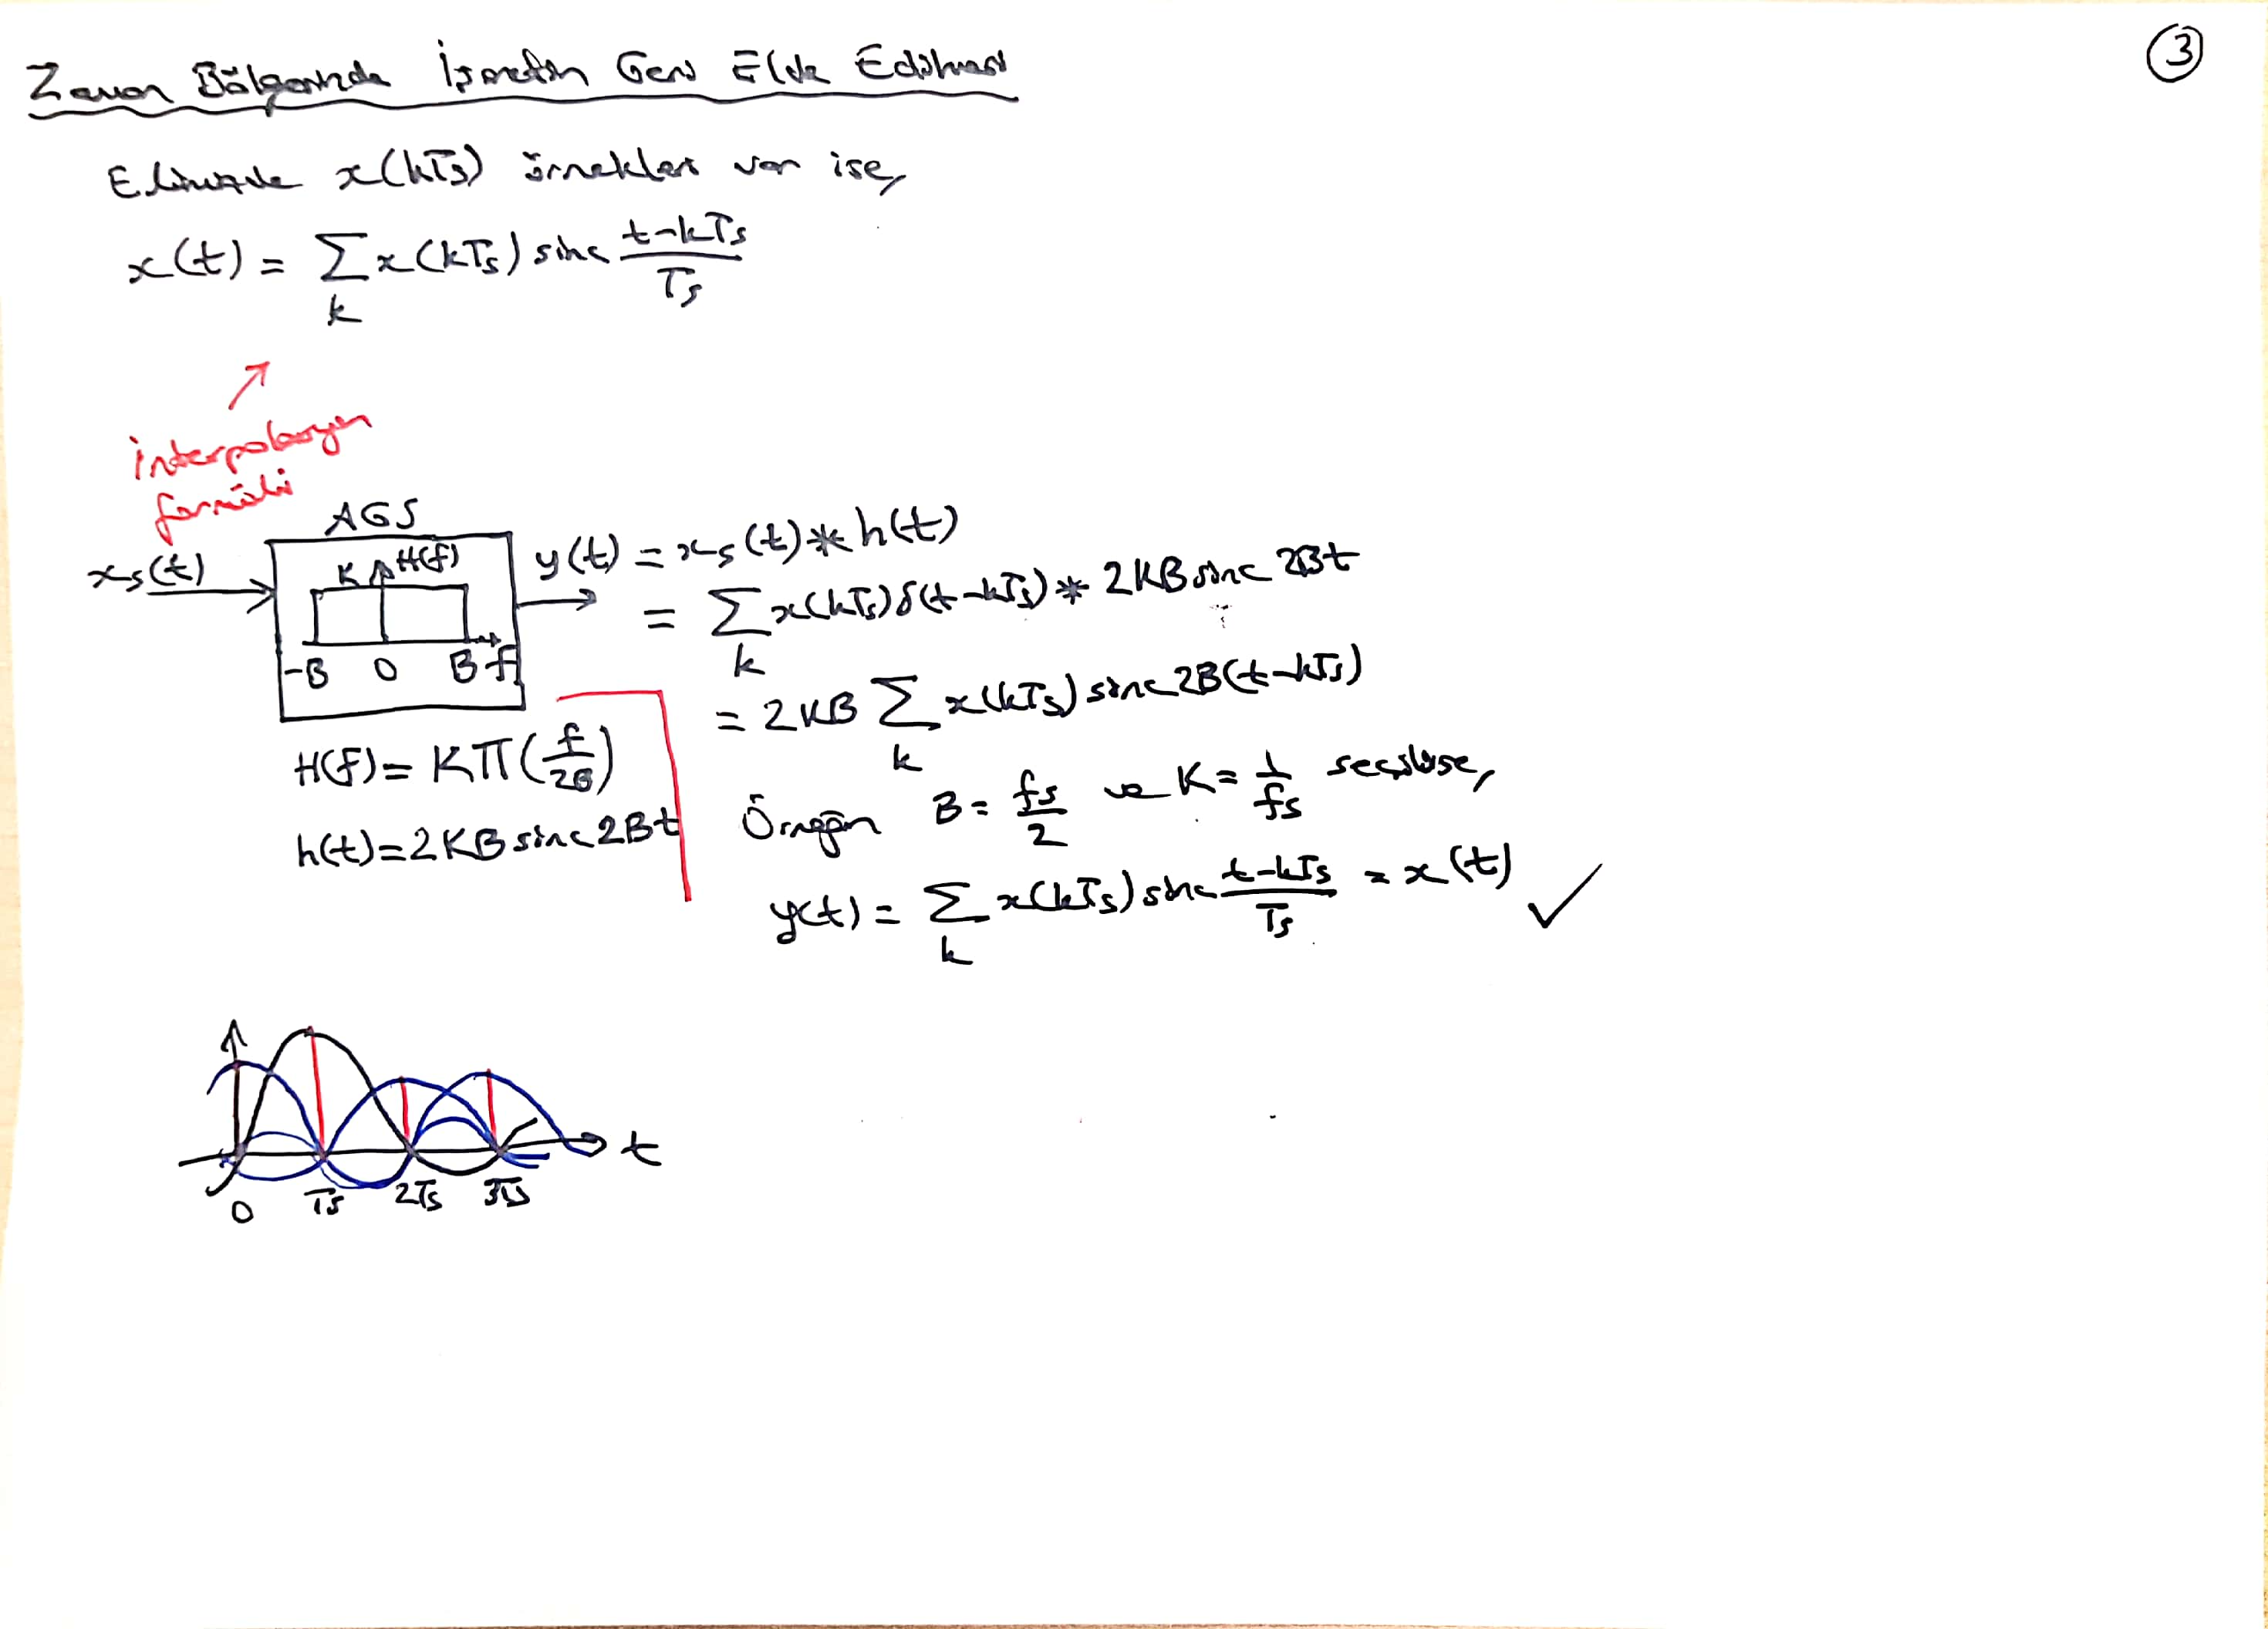 3
Zaman Bölgesinde İşaretin Geri Elde Edilmesi
Elimizde x(kTs) örnekleri var ise,
x(t) = Σ x(kTs) sinc (t-kTs)/Ts
k
interpolasyon
formülü
AGS
xs(t)
K H(f)
-B 0 B f
H(f) = KΠ(f/2B)
h(t) = 2KB sinc 2Bt
y(t) = xs(t) * h(t)
= Σ x(kTs) δ(t-kTs) * 2KB sinc 2Bt
k
= 2KB Σ x(kTs) sinc 2B(t-kTs)
k
Örneğin B = fs/2 ve K = 1/fs seçilirse,
y(t) = Σ x(kTs) sinc (t-kTs)/Ts = x(t) ✓
k
t
0 Ts 2Ts 3Ts